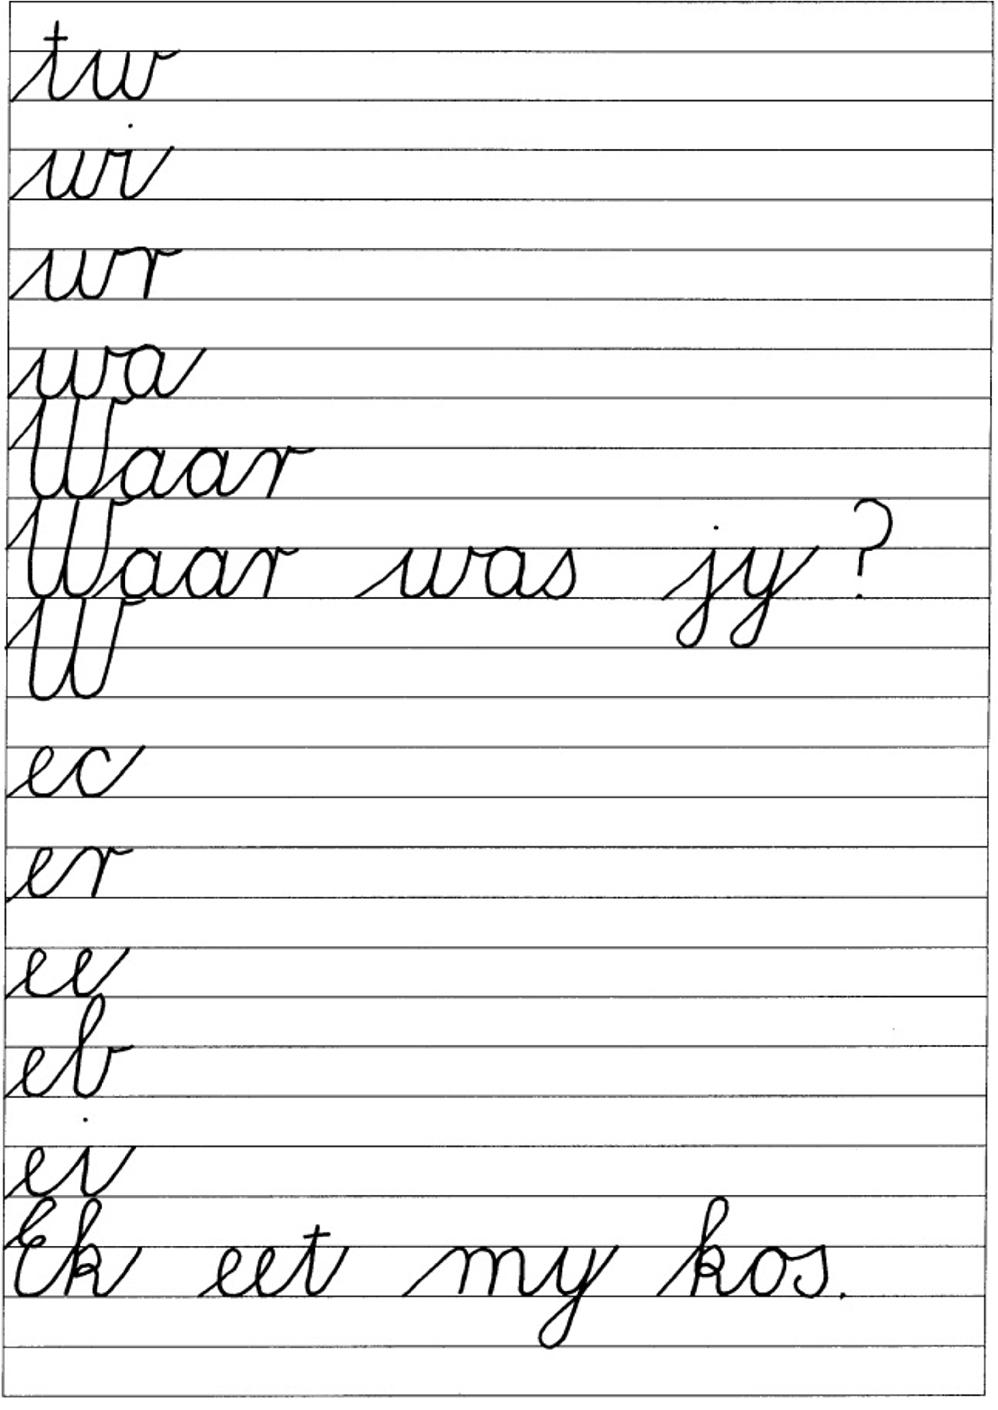 tw
wi
wr
wa
Waar
Waar was jy?
W
ec
er
ee
eb
ei
Ek eet my kos.